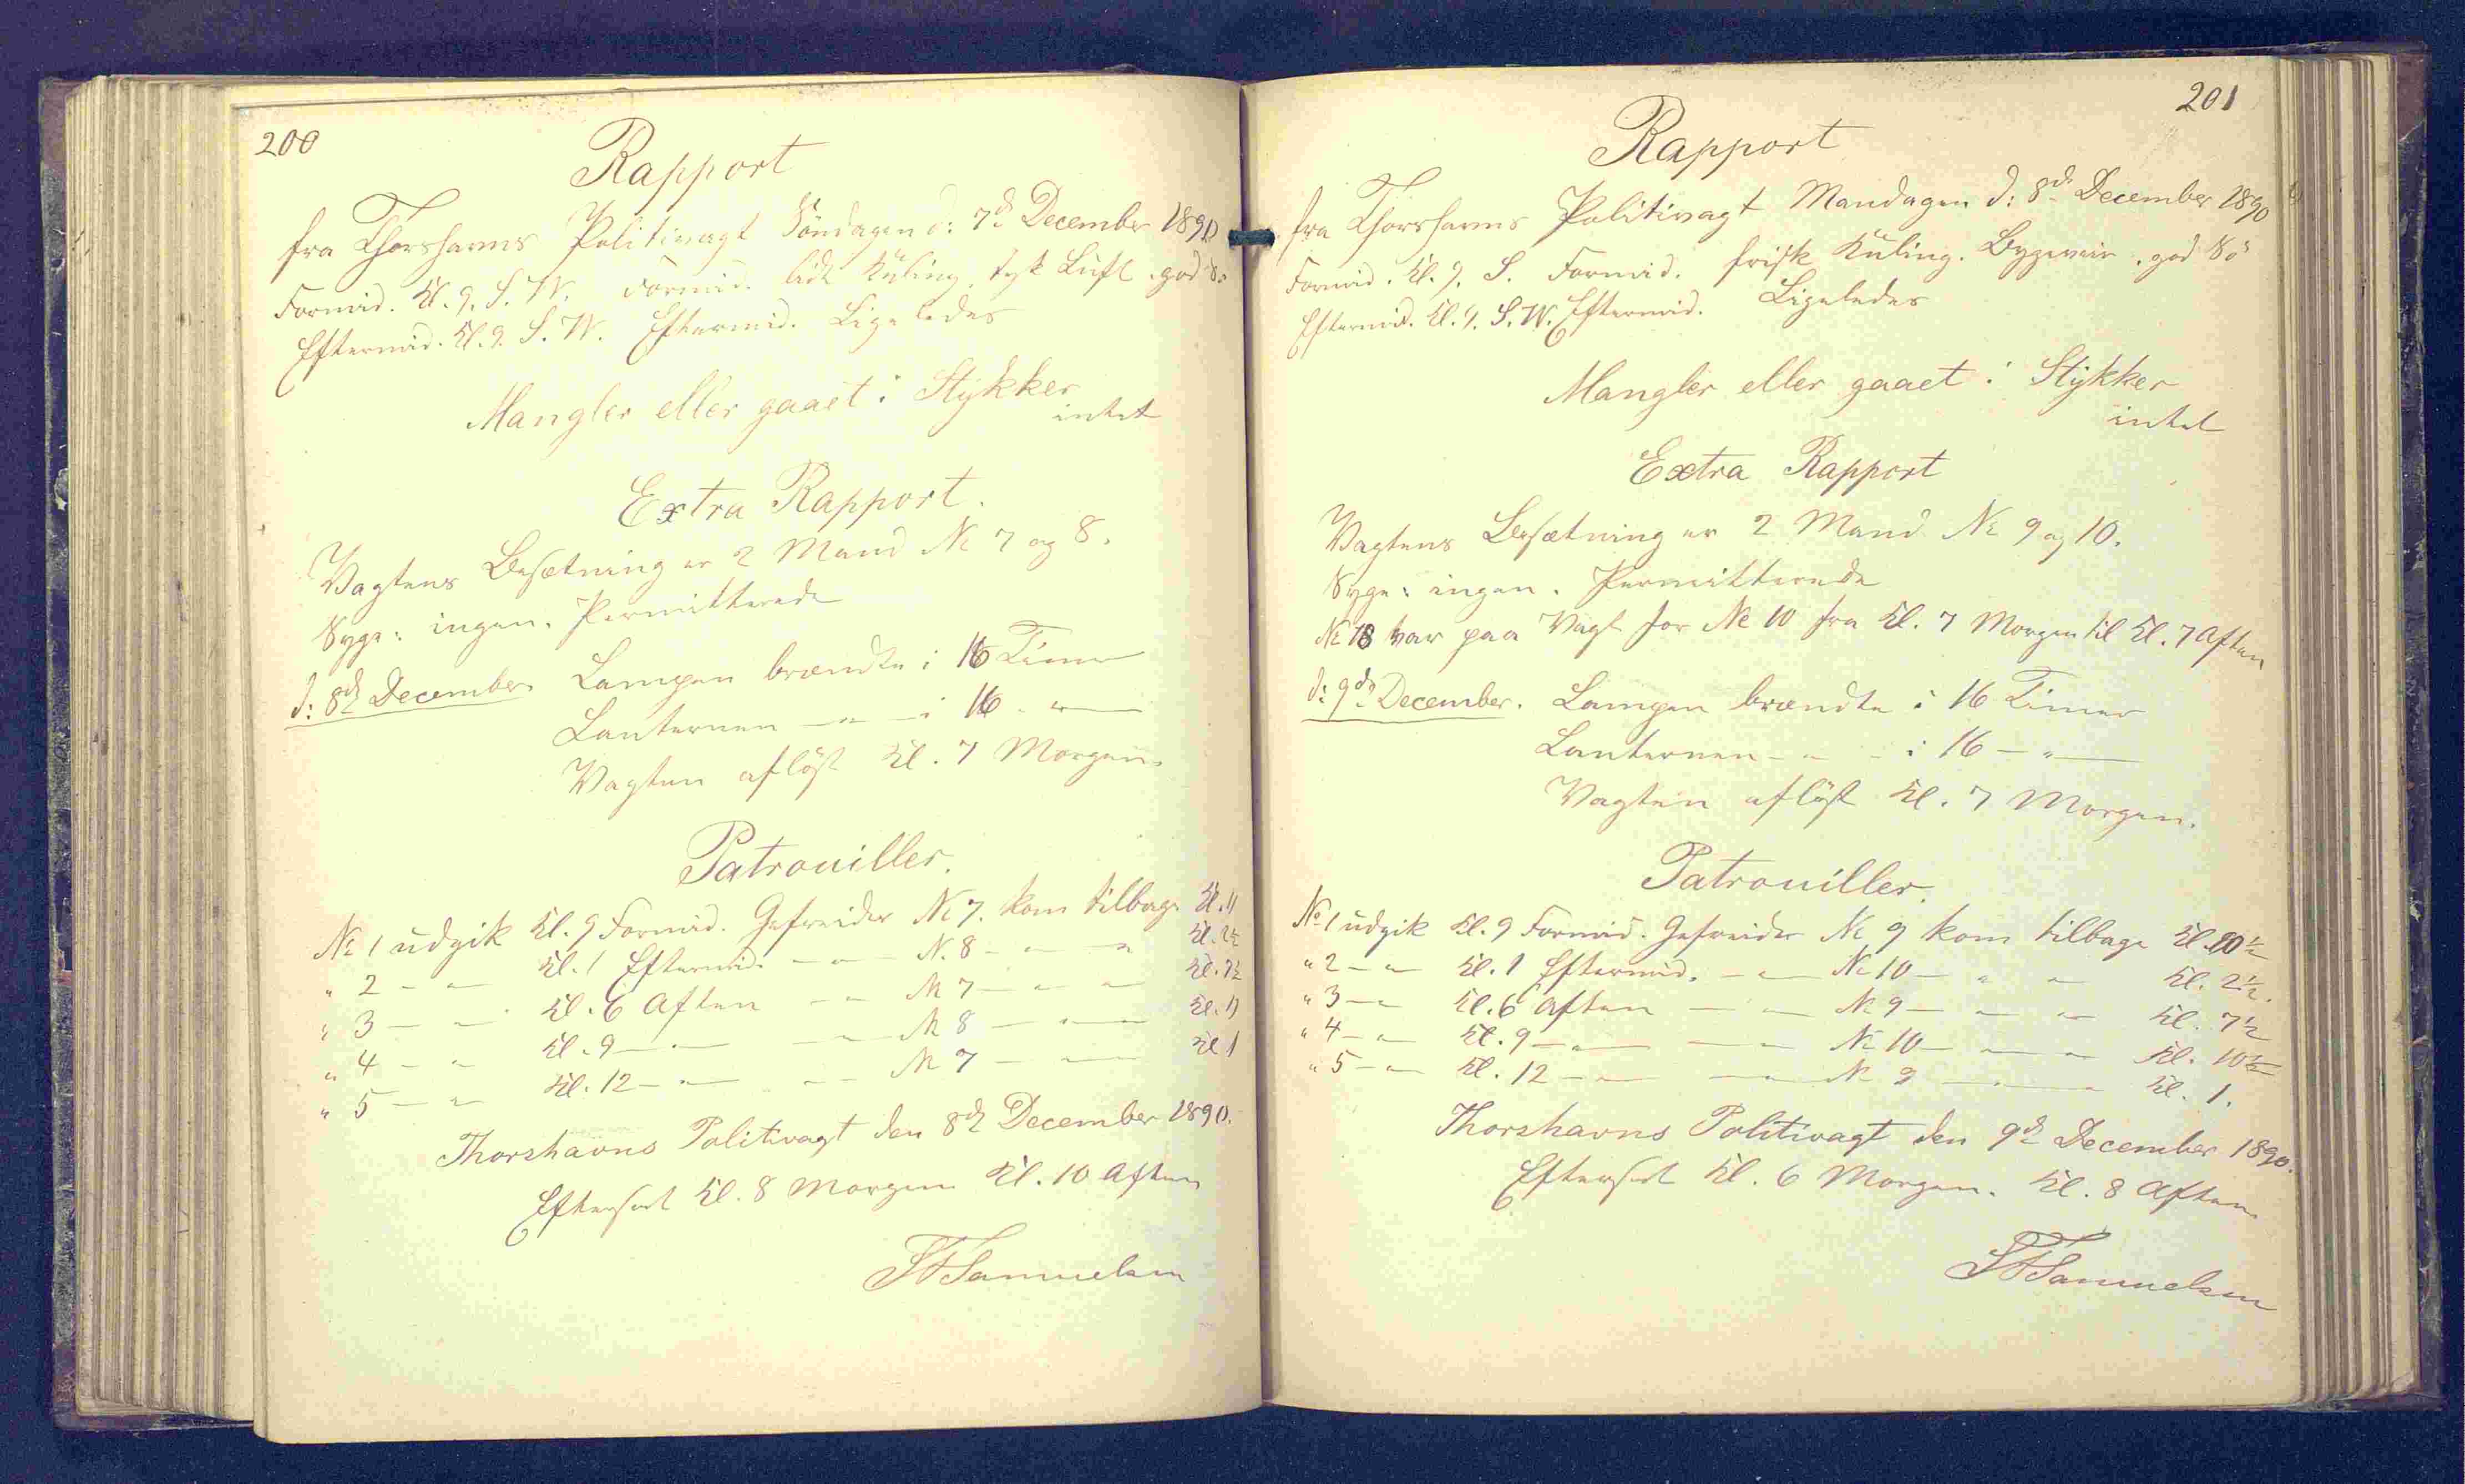 200
Rapport
fra Thorshavns Politivagt Söndagen d: 7de December 1890
Formid. Kl. 9. S. W. Formid. lidt Kuling, tyk Luft. god Sö
Eftermid. Kl. 9. S. W. Eftermid. Ligeledes
Mangler eller gaaet i Stykker
intet
Extra Rapport.
Vagtens Besætning er 2 Mand No 7 og 8.
Syge: ingen. Permitterede
d: 8de December. Lampen brændte i 16 Timer
Lanternen — " — i 16 — " —
Vagten aflöst Kl. 7 Morgen.
Patrouiller.
No 1 udgik Kl. 9 Formid. Gefreider No 7. kom tilbage Kl. 11
" 2 — " — Kl. 1 Eftermid. — " — No 8 — " — " Kl. 2½
" 3 — " — Kl. 6 Aften — " — No 7 — " — " Kl. 7½
" 4 — " — Kl. 9 — " — — " — No 8 — " — " Kl. 11
" 5 — " — Kl. 12 — " — — " — No 7 — " — " Kl 1
Thorshavns Politivagt den 8de December 1890.
Efterset Kl. 8 Morgen Kl. 10 Aften
Samuelsen
201
Rapport
fra Thorshavns Politivagt Mandagen d: 8de December 1890
Formid. Kl. 9. S. Formid. frisk Kuling. Bygeveir. god Sö
Eftermid. Kl. 9. S. W. Eftermid. Ligeledes
Mangler eller gaaet i Stykker
intet
Extra Rapport
Vagtens Besætning er 2 Mand No 9 og 10.
Syge: ingen. Permitterede
No 18 var paa Vagt for No 10 fra Kl. 7 Morgen til Kl. 7 Aften
d: 9de December. Lampen brændte i 16 Timer
Lanternen - " - i 16 — " —
Vagten aflöst Kl. 7 Morgen.
Patrouiller.
No 1 udgik Kl. 9 Formid. Gefreider No 9 kom tilbage Kl. 10½
" 2 — " — Kl. 1 Eftermid. — " — No 10 — " — " Kl. 2½.
" 3 — " — Kl. 6 Aften — " — No 9 — " — " Kl. 7½
" 4 — " — Kl. 9 — " — — " — No 10 — " — " Kl. 10½
" 5 — " — Kl. 12 — " — — " — No 9 — " — " Kl. 1.
Thorshavns Politivagt den 9de December 1890.
Efterset Kl. 6 Morgen. Kl. 8 Aften.
Samuelsen